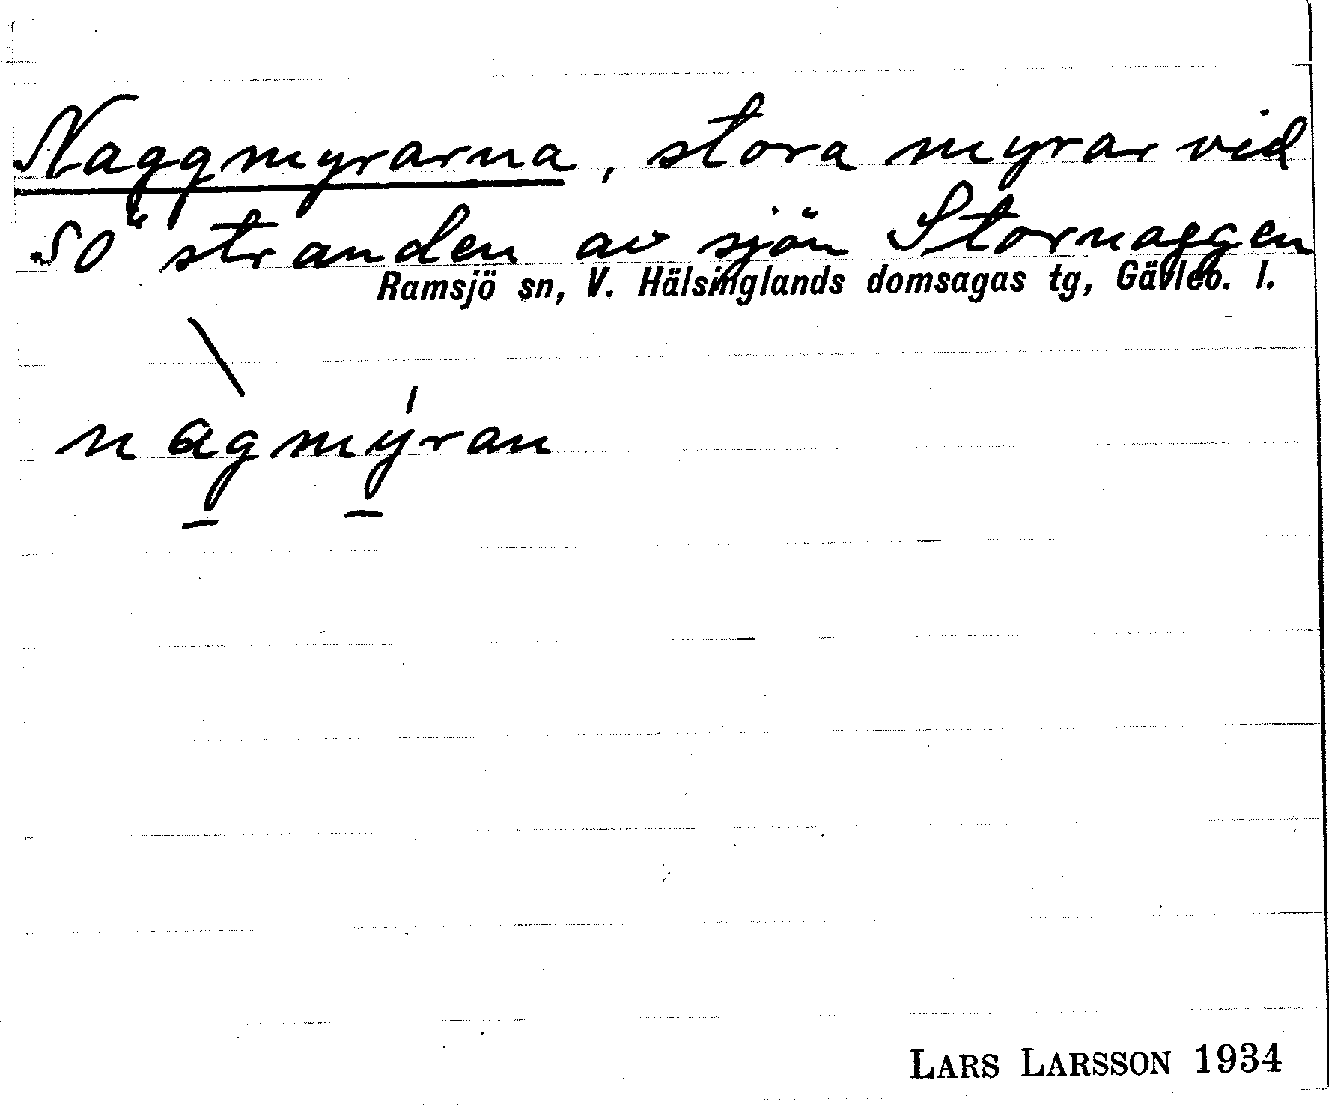 Naggmyrarna, stora myrar vid
SO" stranden av sjön Stornaggen
Ramsjö sn, V. Hälsinglands domsagas tg, Gävleb. l.
nàgmýran
LARS LARSSON 1934